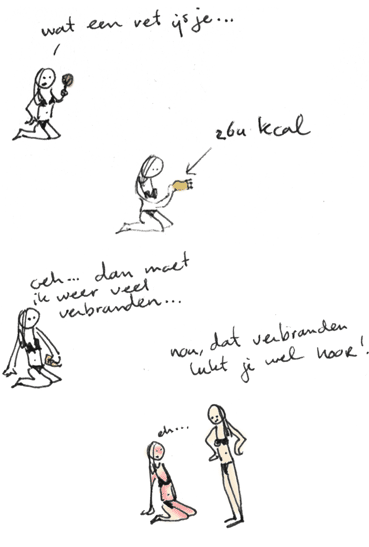 wat een vet ijsje...
264 kcal
oeh... dan moet
ik weer veel
verbranden...
nou, dat verbranden
lukt je wel hoor!
eh...